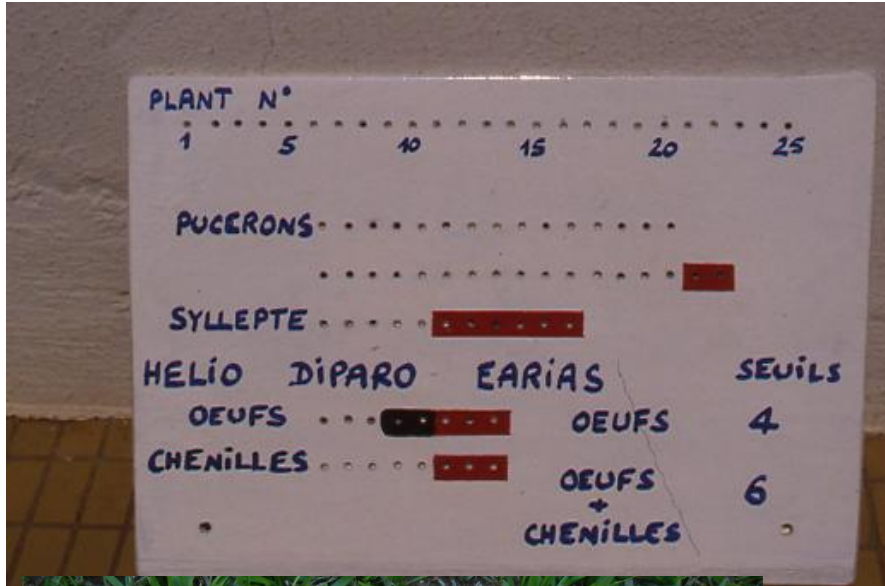 PLANT N°
1 5 10 15 20 25
PUCERONS
SYLLEPTE
HELiO DiPARO EARiAS SEUiLS
OEUFS OEUFS 4
CHENiLLES OEUFS + CHENiLLES 6